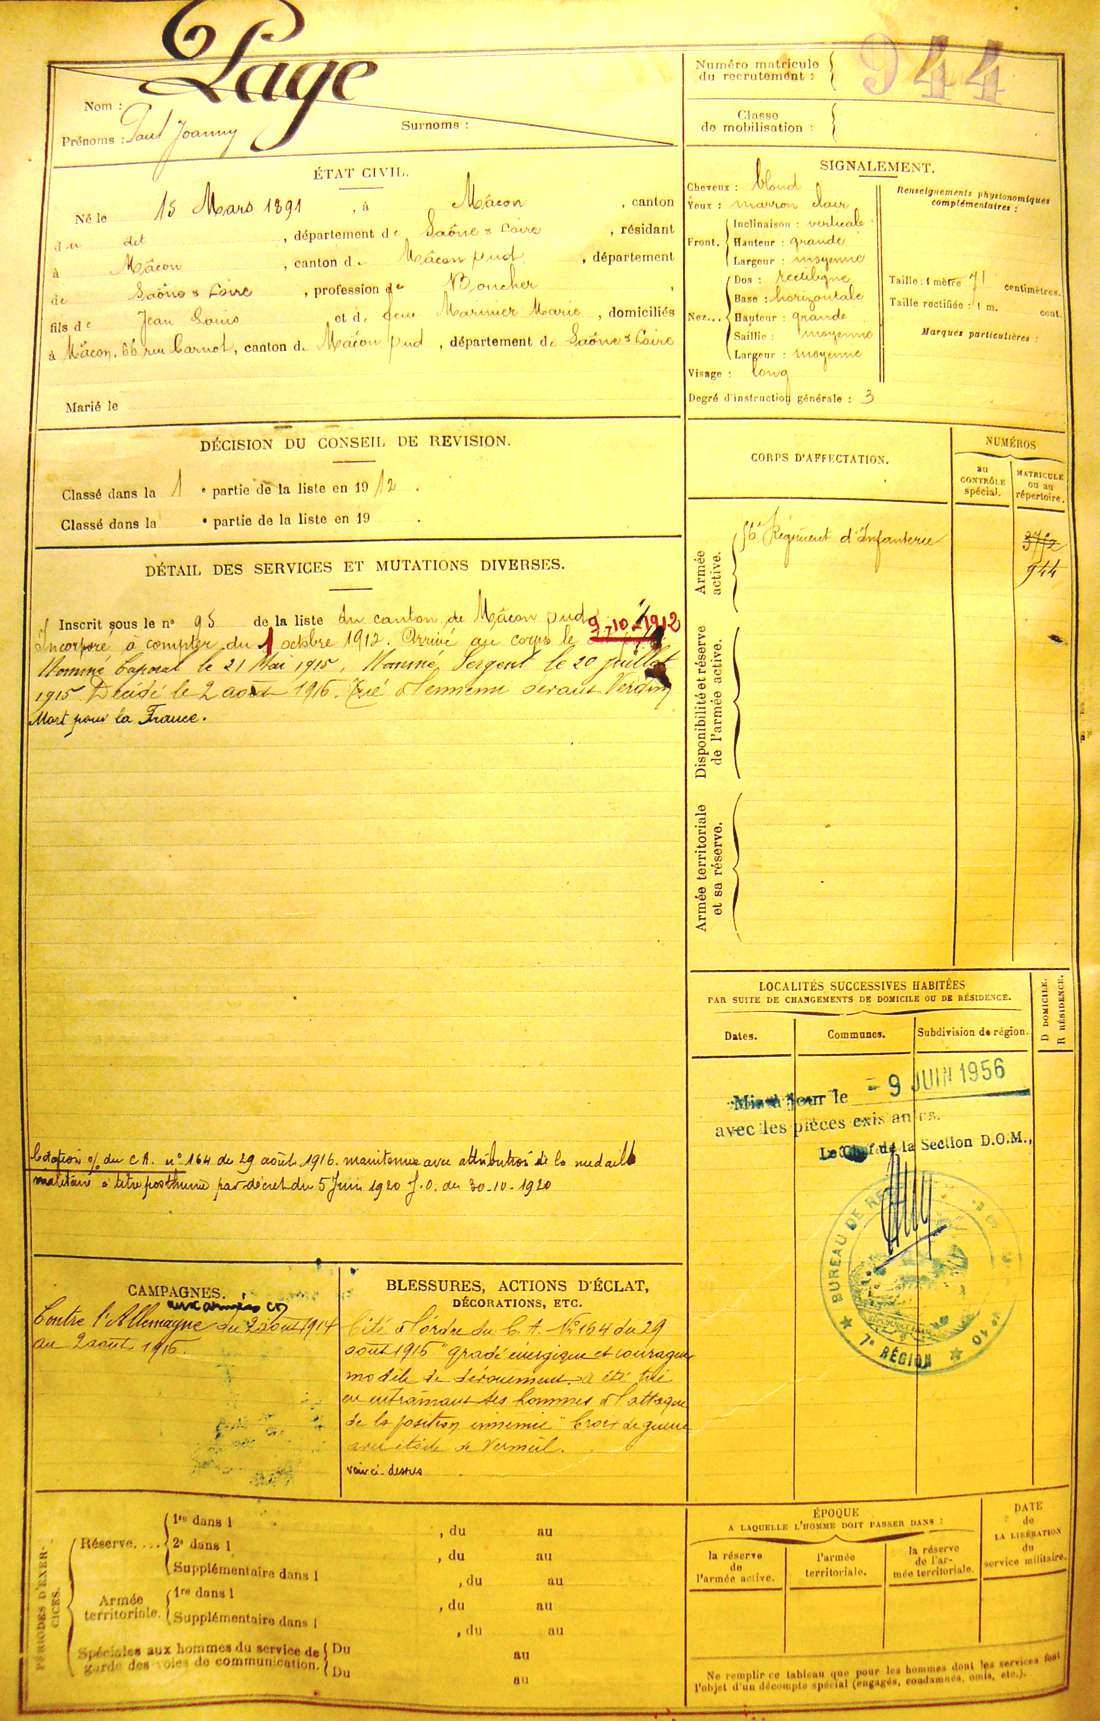 Lage
Nom :
Prénoms : Paul Joanny
Surnoms :
Numéro matricule
du recrutement :
944
Classe
de mobilisation :
ÉTAT CIVIL.
Né le 15 Mars 1891, à Mâcon, canton
du dit, département de Saône & Loire, résidant
à Mâcon, canton de Mâcon sud, département
de Saône & Loire, profession de Boucher,
fils de Jean Louis et de feue Marinier Marie, domiciliés
à Mâcon, 66 rue Carnot, canton de Mâcon sud, département de Saône & Loire
Marié le
SIGNALEMENT.
Cheveux : blond
Yeux : marron clair
Front.
Inclinaison : verticale
Hauteur : grande
Largeur : moyenne
Nez...
Dos : rectiligne
Base : horizontale
Hauteur : grande
Saillie : moyenne
Largeur : moyenne
Visage : long
Degré d'instruction générale : 3
Renseignements physionomiques
complémentaires :
Taille : 1 mètre 71 centimètres.
Taille rectifiée : 1 m. cent.
Marques particulières :
DÉCISION DU CONSEIL DE REVISION.
Classé dans la 1 e partie de la liste en 1912.
Classé dans la e partie de la liste en 19 .
CORPS D'AFFECTATION.
NUMÉROS
au
CONTRÔLE
spécial.
MATRICULE
ou au
répertoire.
Armée
active.
56e Régiment d'Infanterie
944
Disponibilité et réserve
de l'armée active.
Armée territoriale
et sa réserve.
DÉTAIL DES SERVICES ET MUTATIONS DIVERSES.
Inscrit sous le no 95 de la liste du canton de Mâcon sud
Incorporé à compter du 1 octobre 1912. Arrivé au corps le 9-10-1912
Nommé Caporal le 21 Mai 1915. Nommé Sergent le 20 juillet
1915. Décédé le 2 août 1916. Tué à l'ennemi devant Verdun
Mort pour la France.
Citation o/ du C A. no 164 du 29 août 1916. maintenue avec attribution de la médaille
militaire à titre posthume par décret du 5 Juin 1920 J.O. du 30-10-1920
LOCALITÉS SUCCESSIVES HABITÉES
PAR SUITE DE CHANGEMENTS DE DOMICILE OU DE RÉSIDENCE.
Dates.
Communes.
Subdivision de région.
D DOMICILE.
R RÉSIDENCE.
Mis à jour le - 9 JUIN 1956
avec les pièces existantes.
Le Chef de la Section D.O.M.,
BUREAU DE
7e RÉGION
CAMPAGNES.
aux armées
Contre l'Allemagne du 2 août 1914
au 2 août 1916.
BLESSURES, ACTIONS D'ÉCLAT,
DÉCORATIONS, ETC.
Cité à l'ordre du C. A. No 164 du 29
août 1916 "gradé énergique et courageux
modèle de dévouement. a été tué
en entraînant ses hommes à l'attaque
de la position ennemie" Croix de guerre
avec étoile de Vermeil.
voir ci-dessus
PÉRIODES D'EXER-
CICES.
Réserve....
1re dans l , du au
2e dans l , du au
Supplémentaire dans l , du au
Armée
territoriale.
1re dans l , du au
Supplémentaire dans l , du au
Spéciales aux hommes du service de
garde des voies de communication.
Du au
Du au
ÉPOQUE
A LAQUELLE L'HOMME DOIT PASSER DANS :
la réserve
de
l'armée active.
l'armée
territoriale.
la réserve
de l'ar-
mée territoriale.
DATE
de
LA LIBÉRATION
du
service militaire.
Ne remplir ce tableau que pour les hommes dont les services font
l'objet d'un décompte spécial (engagés, condamnés, omis, etc.).